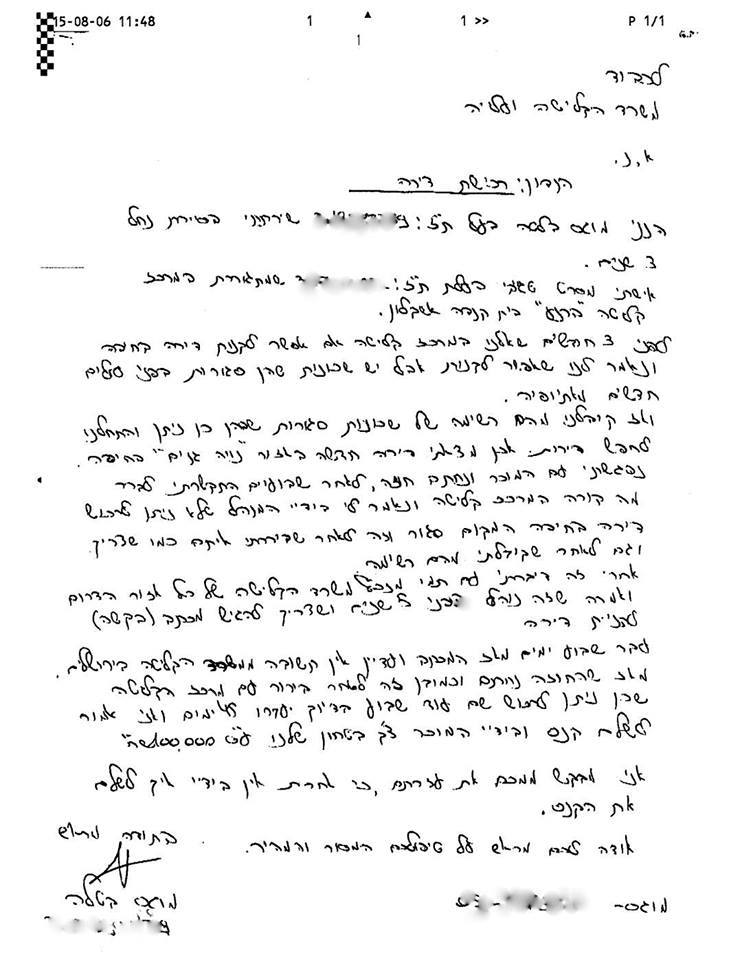 15-08-06 11:48 1 1 >> P 1/1
1
לכבוד
משרד הקליטה ועליה
א.נ.
הנדון: רכישת דירה
הנני מוגס בטלה בעל ת"ז: שירתתי בסיירת נחל
3 שנים.
אישתי מברט טגבי בעלת ת"ז: שמתגוררת במרכז
קליטה "בית קנדה אשקלון.
לפני 3 חודשים שאלנו במרכז קליטה אם אפשר לקנות דירה בחיפה
ונאמר לנו שאפשר לקנות אבל יש שכונות שהן סגורות בפני עולים
חדשים מאתיופיה.
ואז קיבלנו מהם רשימה של שכונות סגורות שבהן כן ניתן והתחלנו
לחפש דירות. אכן מצאתי דירה חדשה באזור "נווה גנים" בחיפה.
נפגשתי עם המוכר ונחתם חוזה, לאחר שבועיים התקשרתי לברר
מה קורה המרכז קליטה ונאמר לי בידיי המנהל שלא ניתן לרכוש
דירה בחיפה המקום סגור וזה לאחר שביררתי איתם כמו שצריך
וגם לאחר שקיבלתי מהם רשימה.
אחרי זה דיברתי עם משרד הקליטה של כל אזור הדרום
ואמרה שזה נוהל לפני 5 שנים ושצריך להגיש מכתב (בקשה)
לקניית דירה
עבר שבוע ימים מאז המכתב ועדיין אין תשובה ממשרד הקליטה בירושלים.
מאז שהחוזה נחתם וכמובן זה לאחר בירור עם מרכז הקליטה
שכן ניתן לרכוש שם עוד שבוע בדיוק יעברו ימים ואני אמור
לשלם קנס ובידיי המוכר צ'ק בטחון שלנו ע"ס 100,000 ש"ח
אני מבקש מכם את עזרתם, כי אחרת אין בידיי איך לשלם
את הקנס.
אודה לכם מראש על טיפולכם המסור והמהיר.
בתודה מראש
מוגס בטלה
מוגס-